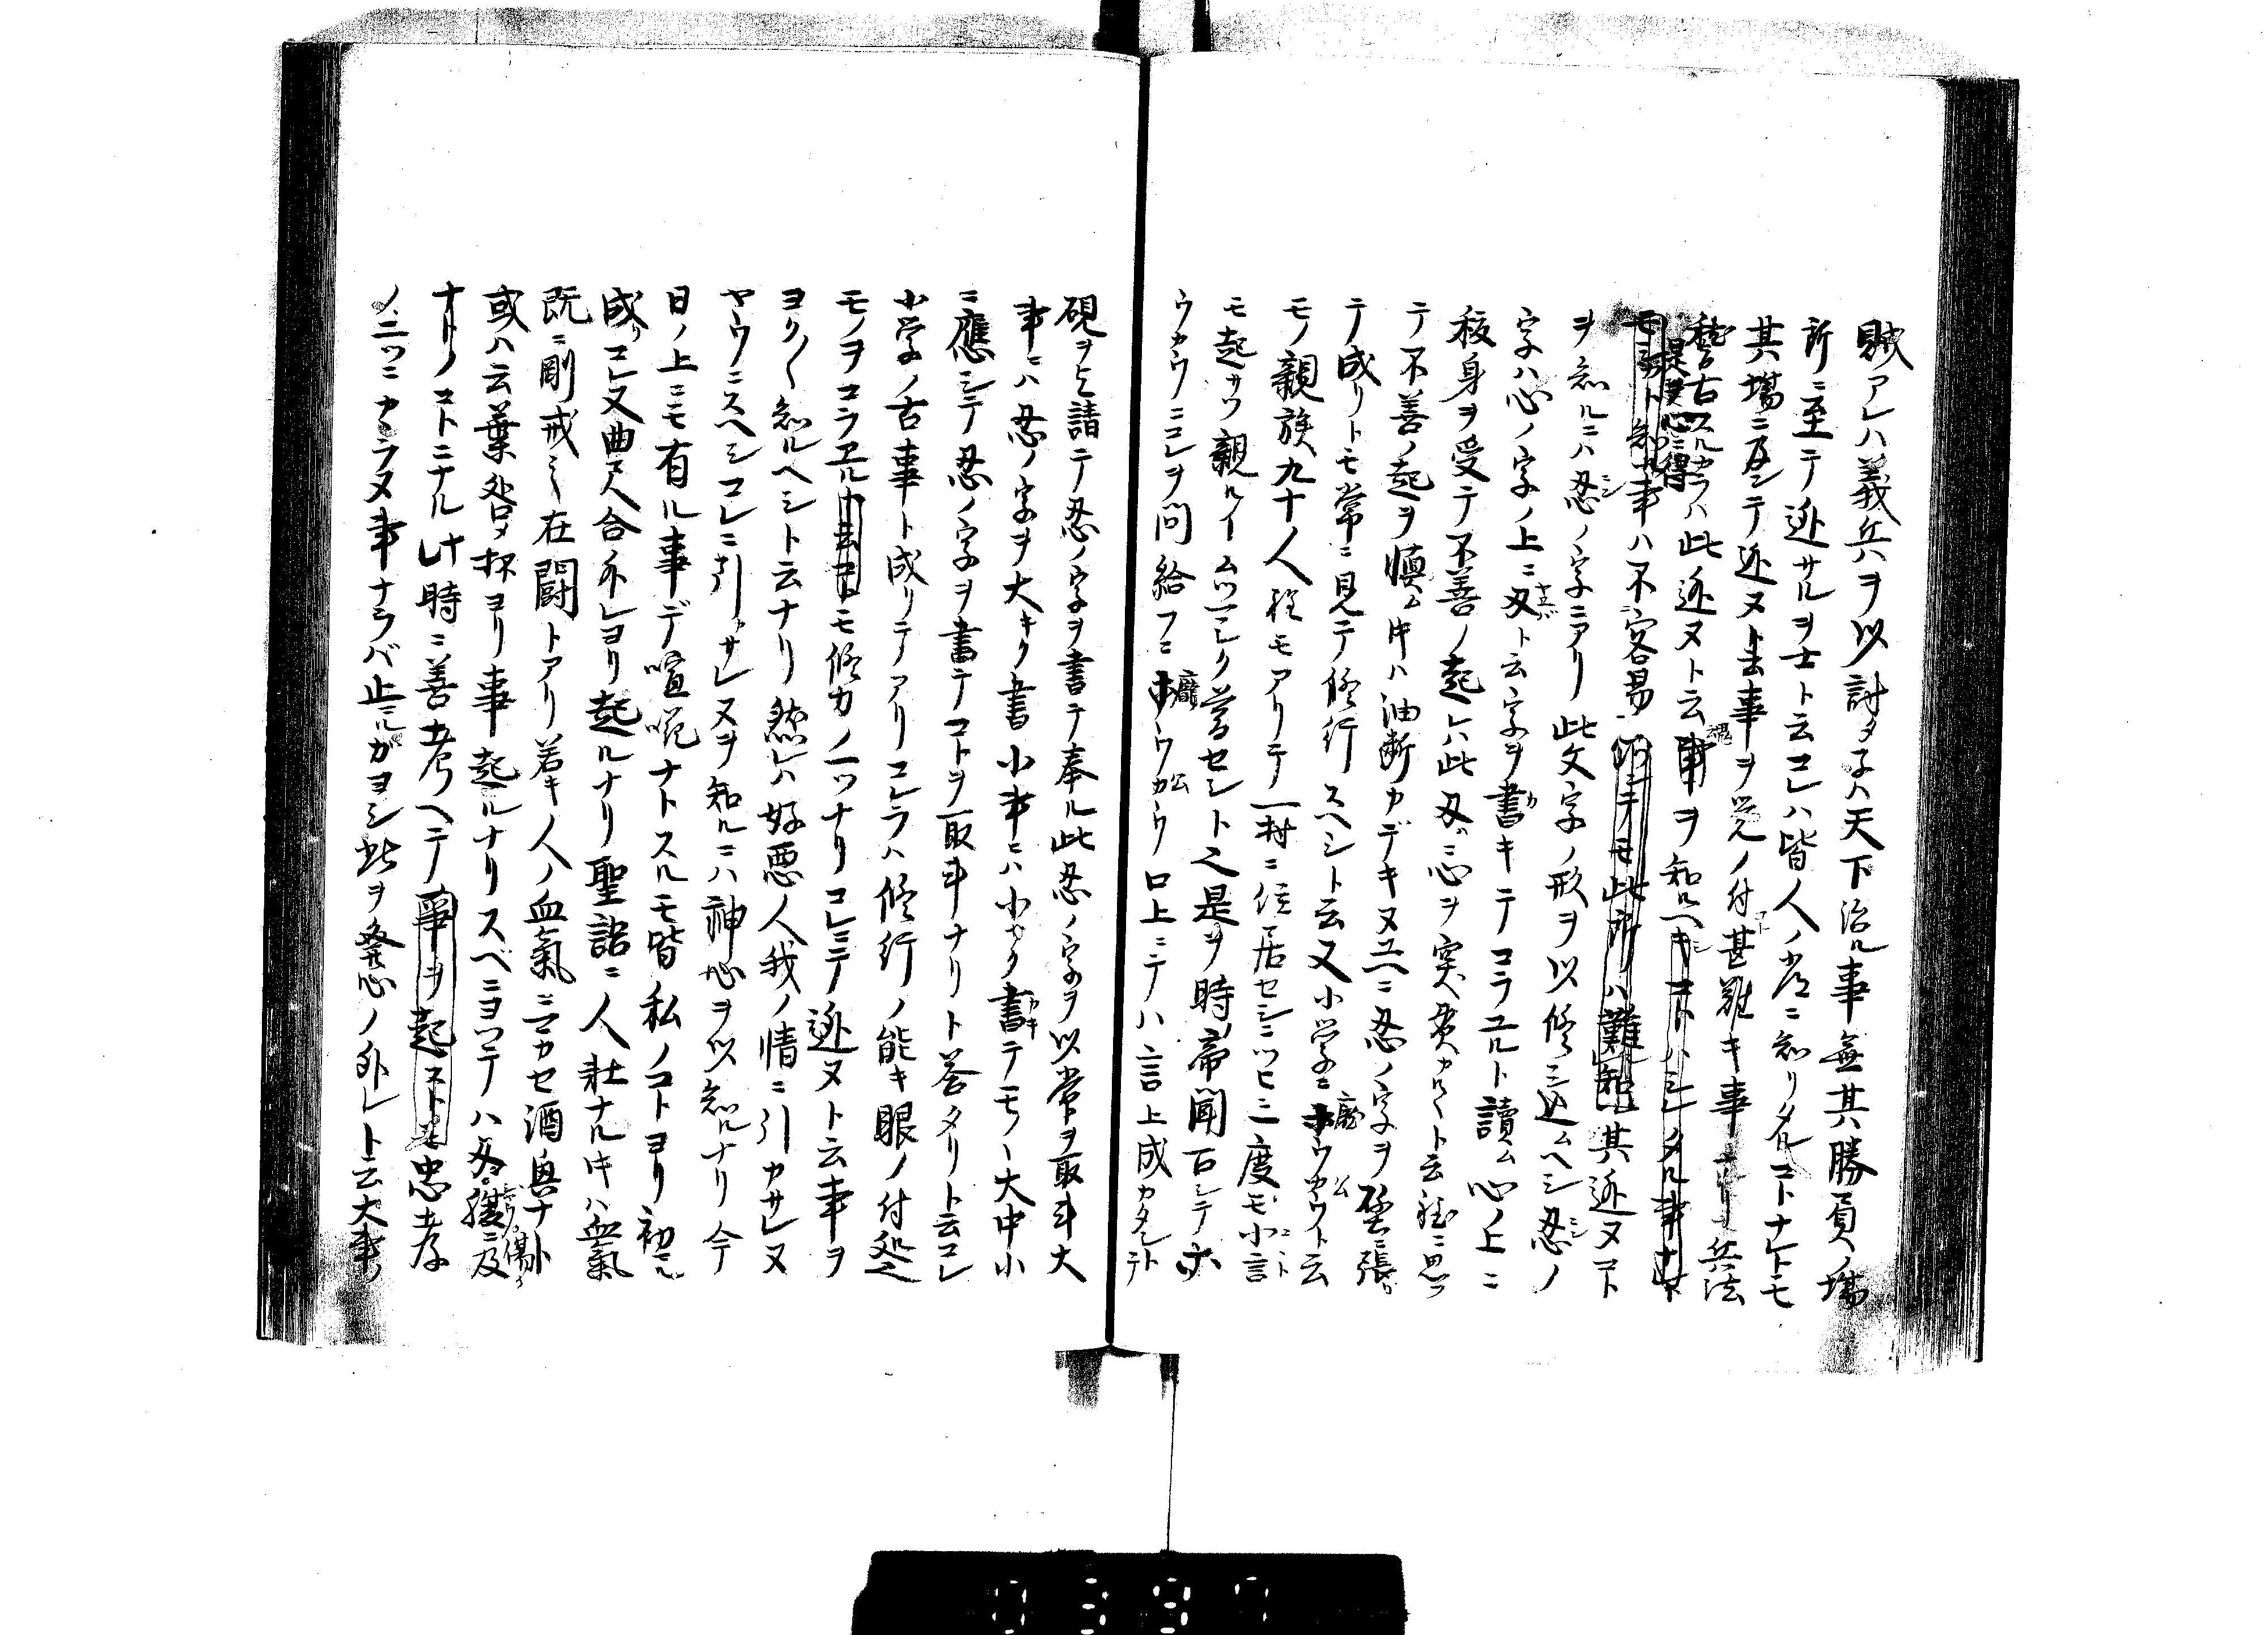 賊アレハ義兵ヲ以討タネハ天下治ル事無其勝負ノ場
所ニ至テ逃サルヲ士ト云コレハ皆人ノ常ニ知リタルコトナレトモ
其場ニ及シテ逃ヌト云事ヲ覚ノ付甚難キ事ナリ兵法
稽古スルカラハ此逃ヌト云事ヲ知ルヘキコトハシレタル事ナレト
モ知ト知ル事ハ不容易此所ハ難知其逃ヌコト
ヲ知ルニハ忍ノ字ニアリ此文字ノ形ヲ以修シ込ムヘシ忍ノ
字ハ心ノ字ノ上ニ刃ト云字ヲ書キテコラユルト讀ム心ノ上ニ
我身ヲ受テ不善ノ起レハ此刃ニ心ヲ突貫カルヽト云程ニ思フ
テ不善ノ起ヲ慎ム牛ハ油断カデキヌユヘニ忍ノ字ヲ壁ニ張
テ成リトモ常ニ見テ修行スヘシト云又小学ニ張公ウカウト云
モノ親族九十人程モアリテ一村ニ住居セシニツヒニ一度モ小言
モ起サツ親ルイムツマシク暮セシト之是ヲ時ノ帝聞召シテ
ウカウニコレヲ問給フニ張公ウカウ口上ニテハ言上成カタシトテ
硯ヲト請テ忍ノ字ヲ書テ奉ル此忍ノ字ヲ以常ヲ取斗大
事ニハ忍ノ字ヲ大キク書小事ニハ小サク書テモノヽ大中小
ニ應シテ忍ノ字ヲ書テコトヲ取斗ナリト答タリト云コレ
小学ノ古事ト成リテアリコレラハ修行ノ能キ眼ノ付処
モノヲコラヱルト云コトモ修力ノ一ツナリコレニテ逃ヌト云事ヲ
ヨク〱知ルヘシト云ナリ然レハ好悪ノ人我ノ情ニ引カサレヌ
ヤウニスヘシコレニ引カサレヌヲ知ルニハ神心ヲ以知ルナリ今
日ノ上ニモ有ル事デ喧嘩ナトスルモ皆私ノコトヨリ初ル
成リコレ又曲尺合外レヨリ起ルナリ聖語ニ人壮ナル牛ハ血氣
既ニ剛戒之在闘トアリ若キ人ノ血氣ニマカセ酒興ナト
或ハ云葉咎メ抔ヨリ事起ルナリスベニヨツテハ刃傷ニ及
ナトノコトニナル此時ニ善考ヘテ事ヲ起ストモ忠孝
ノ二ツニナラヌ事ナラバ止ルガヨシ此ヲ發心ノ外レト云大事ノ